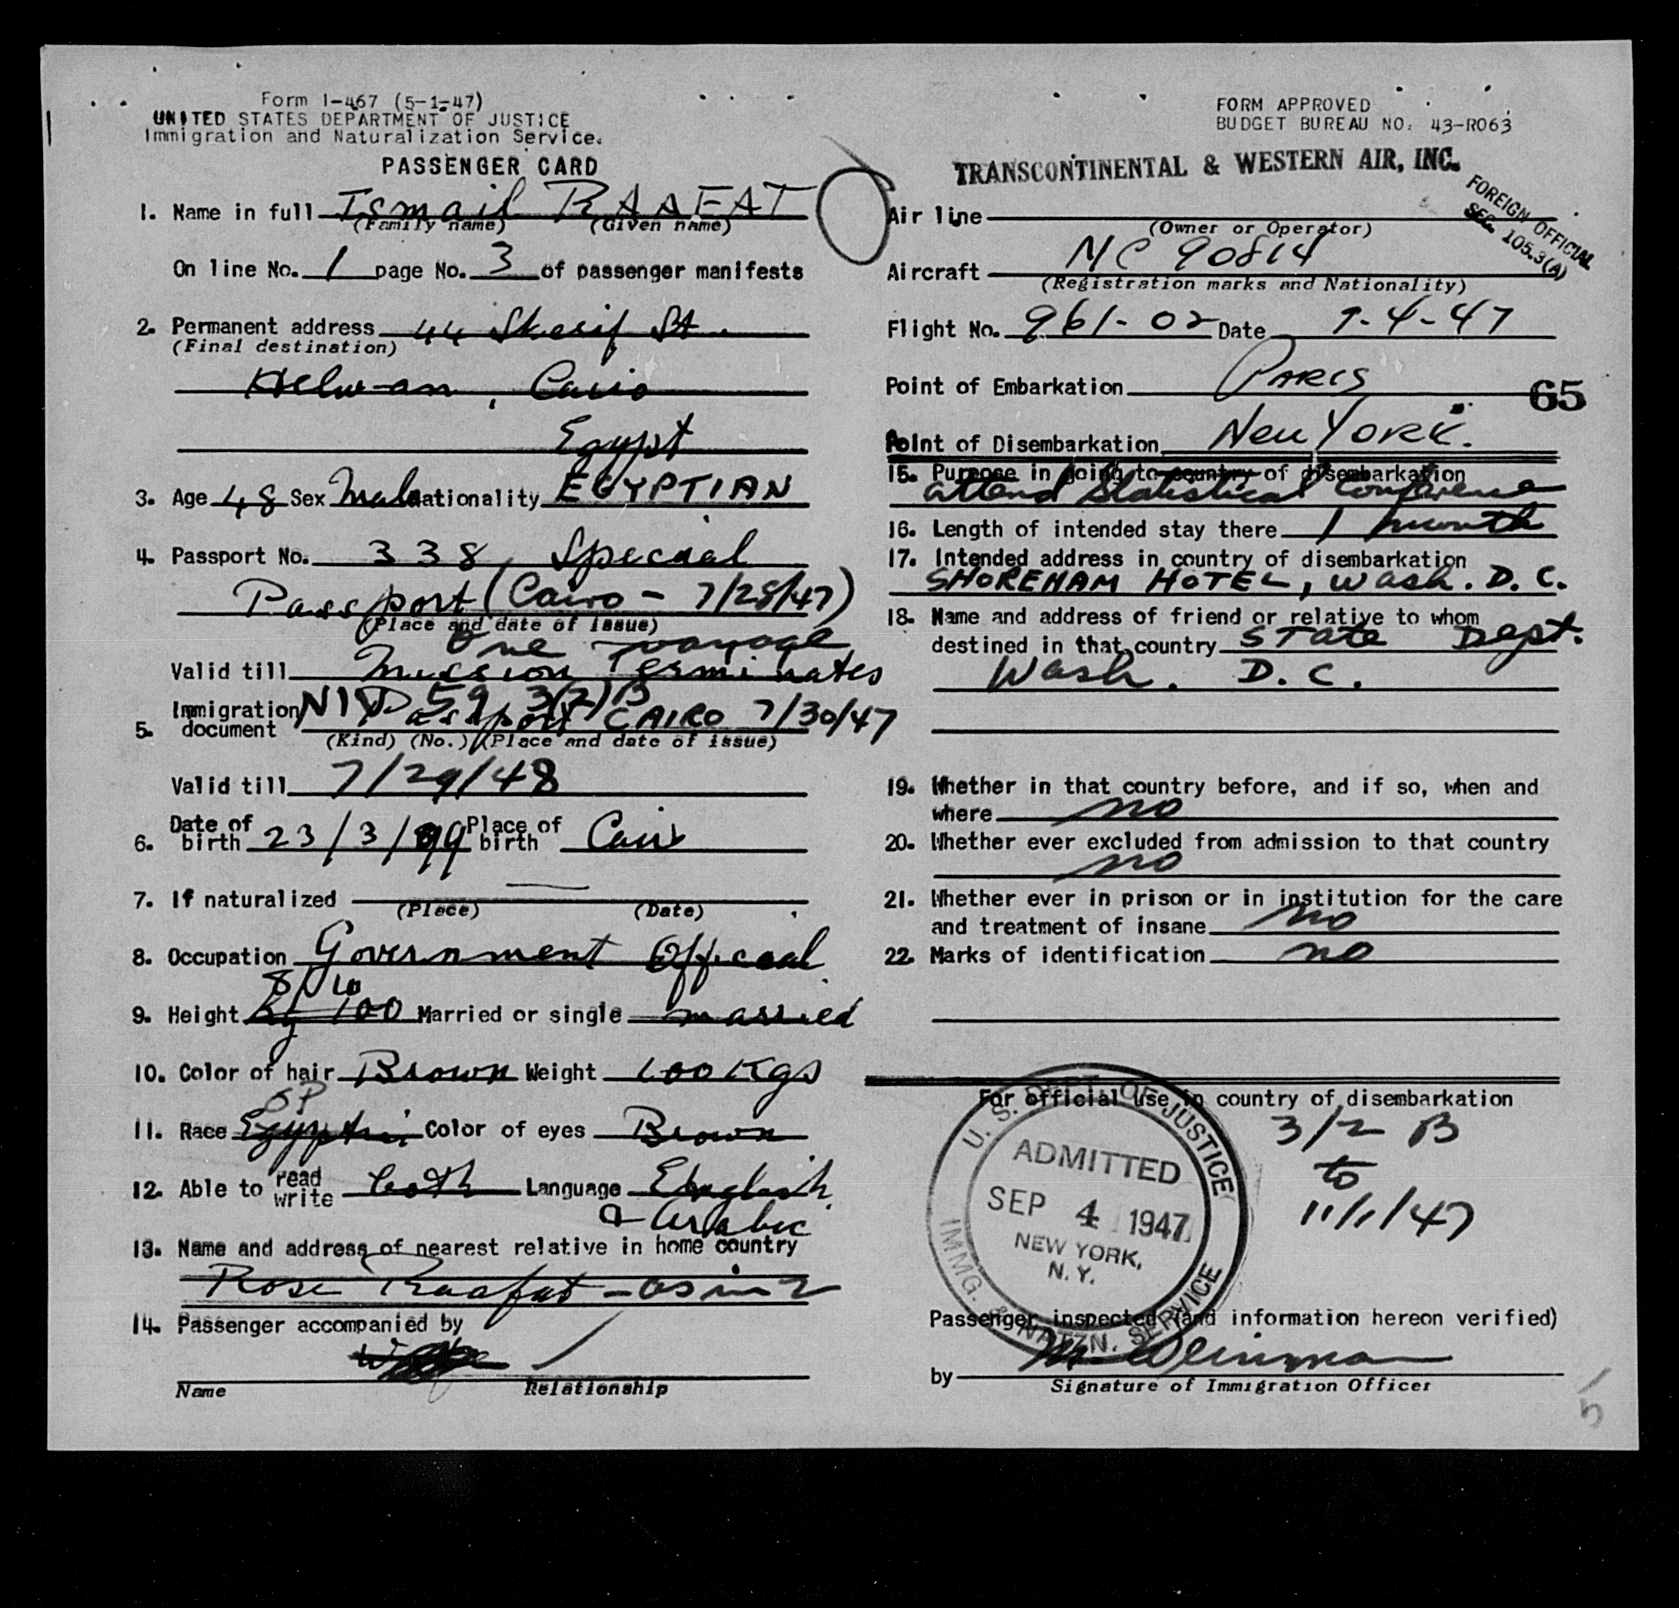 Form I-467 (5-1-47)
UNITED STATES DEPARTMENT OF JUSTICE
Immigration and Naturalization Service.
PASSENGER CARD
1. Name in full Ismail RAAFAT
(Family name) (Given name)
On line No. 1 page No. 3 of passenger manifests
2. Permanent address 44 Sherif St.
(Final destination)
Helwan, Cairo
Egypt
3. Age 48 Sex Male Nationality EGYPTIAN
4. Passport No. 338, Special
Passport (Cairo - 7/28/47)
(Place and date of issue)
One voyage
Valid till Mission Terminates
5. Immigration document NIV 59 3(2)B
Passport CAIRO 7/30/47
(Kind) (No.) (Place and date of issue)
Valid till 7/29/48
6. Date of birth 23/3/99 Place of birth Cairo
7. If naturalized
(Place) (Date)
8. Occupation Government Official
9. Height Married or single married
10. Color of hair Brown Weight 100 Kgs
11. Race Egyptian Color of eyes Brown
12. Able to read write both Language English
& Arabic
13. Name and address of nearest relative in home country
Rose Raafat - as in 2
14. Passenger accompanied by
Name Relationship
FORM APPROVED
BUDGET BUREAU NO. 43-R063
TRANSCONTINENTAL & WESTERN AIR, INC.
FOREIGN OFFICIAL
SEC. 105.3(A)
Air line
(Owner or Operator)
Aircraft NC 90814
(Registration marks and Nationality)
Flight No. 961-02 Date 9-4-47
Point of Embarkation PARIS
65
Point of Disembarkation New YORK.
15. Purpose in going to country of disembarkation
attend Statistical Conference
16. Length of intended stay there 1 month
17. Intended address in country of disembarkation
SHOREHAM HOTEL, Wash. D. C.
18. Name and address of friend or relative to whom
destined in that country State Dept.
Wash. D. C.
19. Whether in that country before, and if so, when and
where no
20. Whether ever excluded from admission to that country
no
21. Whether ever in prison or in institution for the care
and treatment of insane no
22. Marks of identification no
For official use in country of disembarkation
3/2 B
to
11/1/47
U. S. DEPT. OF JUSTICE
ADMITTED
SEP 4 1947
NEW YORK,
N. Y.
IMMG. & NATZN. SERVICE
Passenger inspected (and information hereon verified)
by
Signature of Immigration Officer